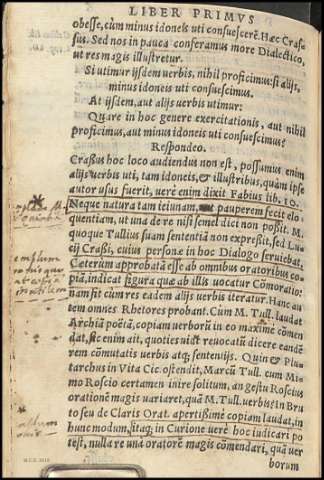 LIBER PRIMVS
obesse, cùm minus idoneis uti consuescerē. Hæc Crasſ
sus. Sed nos in pauca conferamus more Dialectico,
ut res magis illustretur.
Si utimur ijsdem uerbis, nihil proficimus: si alijs,
minus idoneis uti consuescimus.
At ijsdem, aut alijs uerbis utimur:
Quare in hoc genere exercitationis, aut nihil
proficimus, aut minus idoneis uti consuescimus?
Respondeo.
Crassus hoc loco audiendus non est, possumus enim
alijs uerbis uti, tam idoneis, & illustribus, quàm ipse
autor usus fuerit, uerè enim dixit Fabius lib. 10.
Neque natura tam ieiunam, aut pauperem fecit elo-
quentiam, ut una de re nisi semel dict non poßit. M.
quoque Tullius suam sententiā non expreßit, sed Lu
cij Craßi, cuius personæ in hoc Dialogo seruiebat.
Cæterùm approbatā esse ab omnibus oratoribus co-
piā, indicat figura quæ ab illis uocatur Cōmoratio:
nam sit cùm res eadem alijs uerbis iteratur. Hanc au
tem omnes Rhetores probant. Cùm M. Tull. laudat
Archiā poëtā, copiam uerborū in eo maximè cōmen
dat, sic enim ait, quoties uidi reuocatū dicere eandē
rem cōmutatis uerbis atq; sententijs. Quin & Plu-
tarchus in Vita Cic. ostendit, Marcū Tull. cum Mi
mo Roscio certamen inire solitum, an gestu Roscius
orationē magis uariaret, quā M. Tull. uerbis? In Bru
to seu de Claris Orat. apertißimè copiam laudat, in
hunc modum, sitaq; in Curione uerè hoc iudicari po
test, nulla re una oratorē magis comendari, quā uer
borum